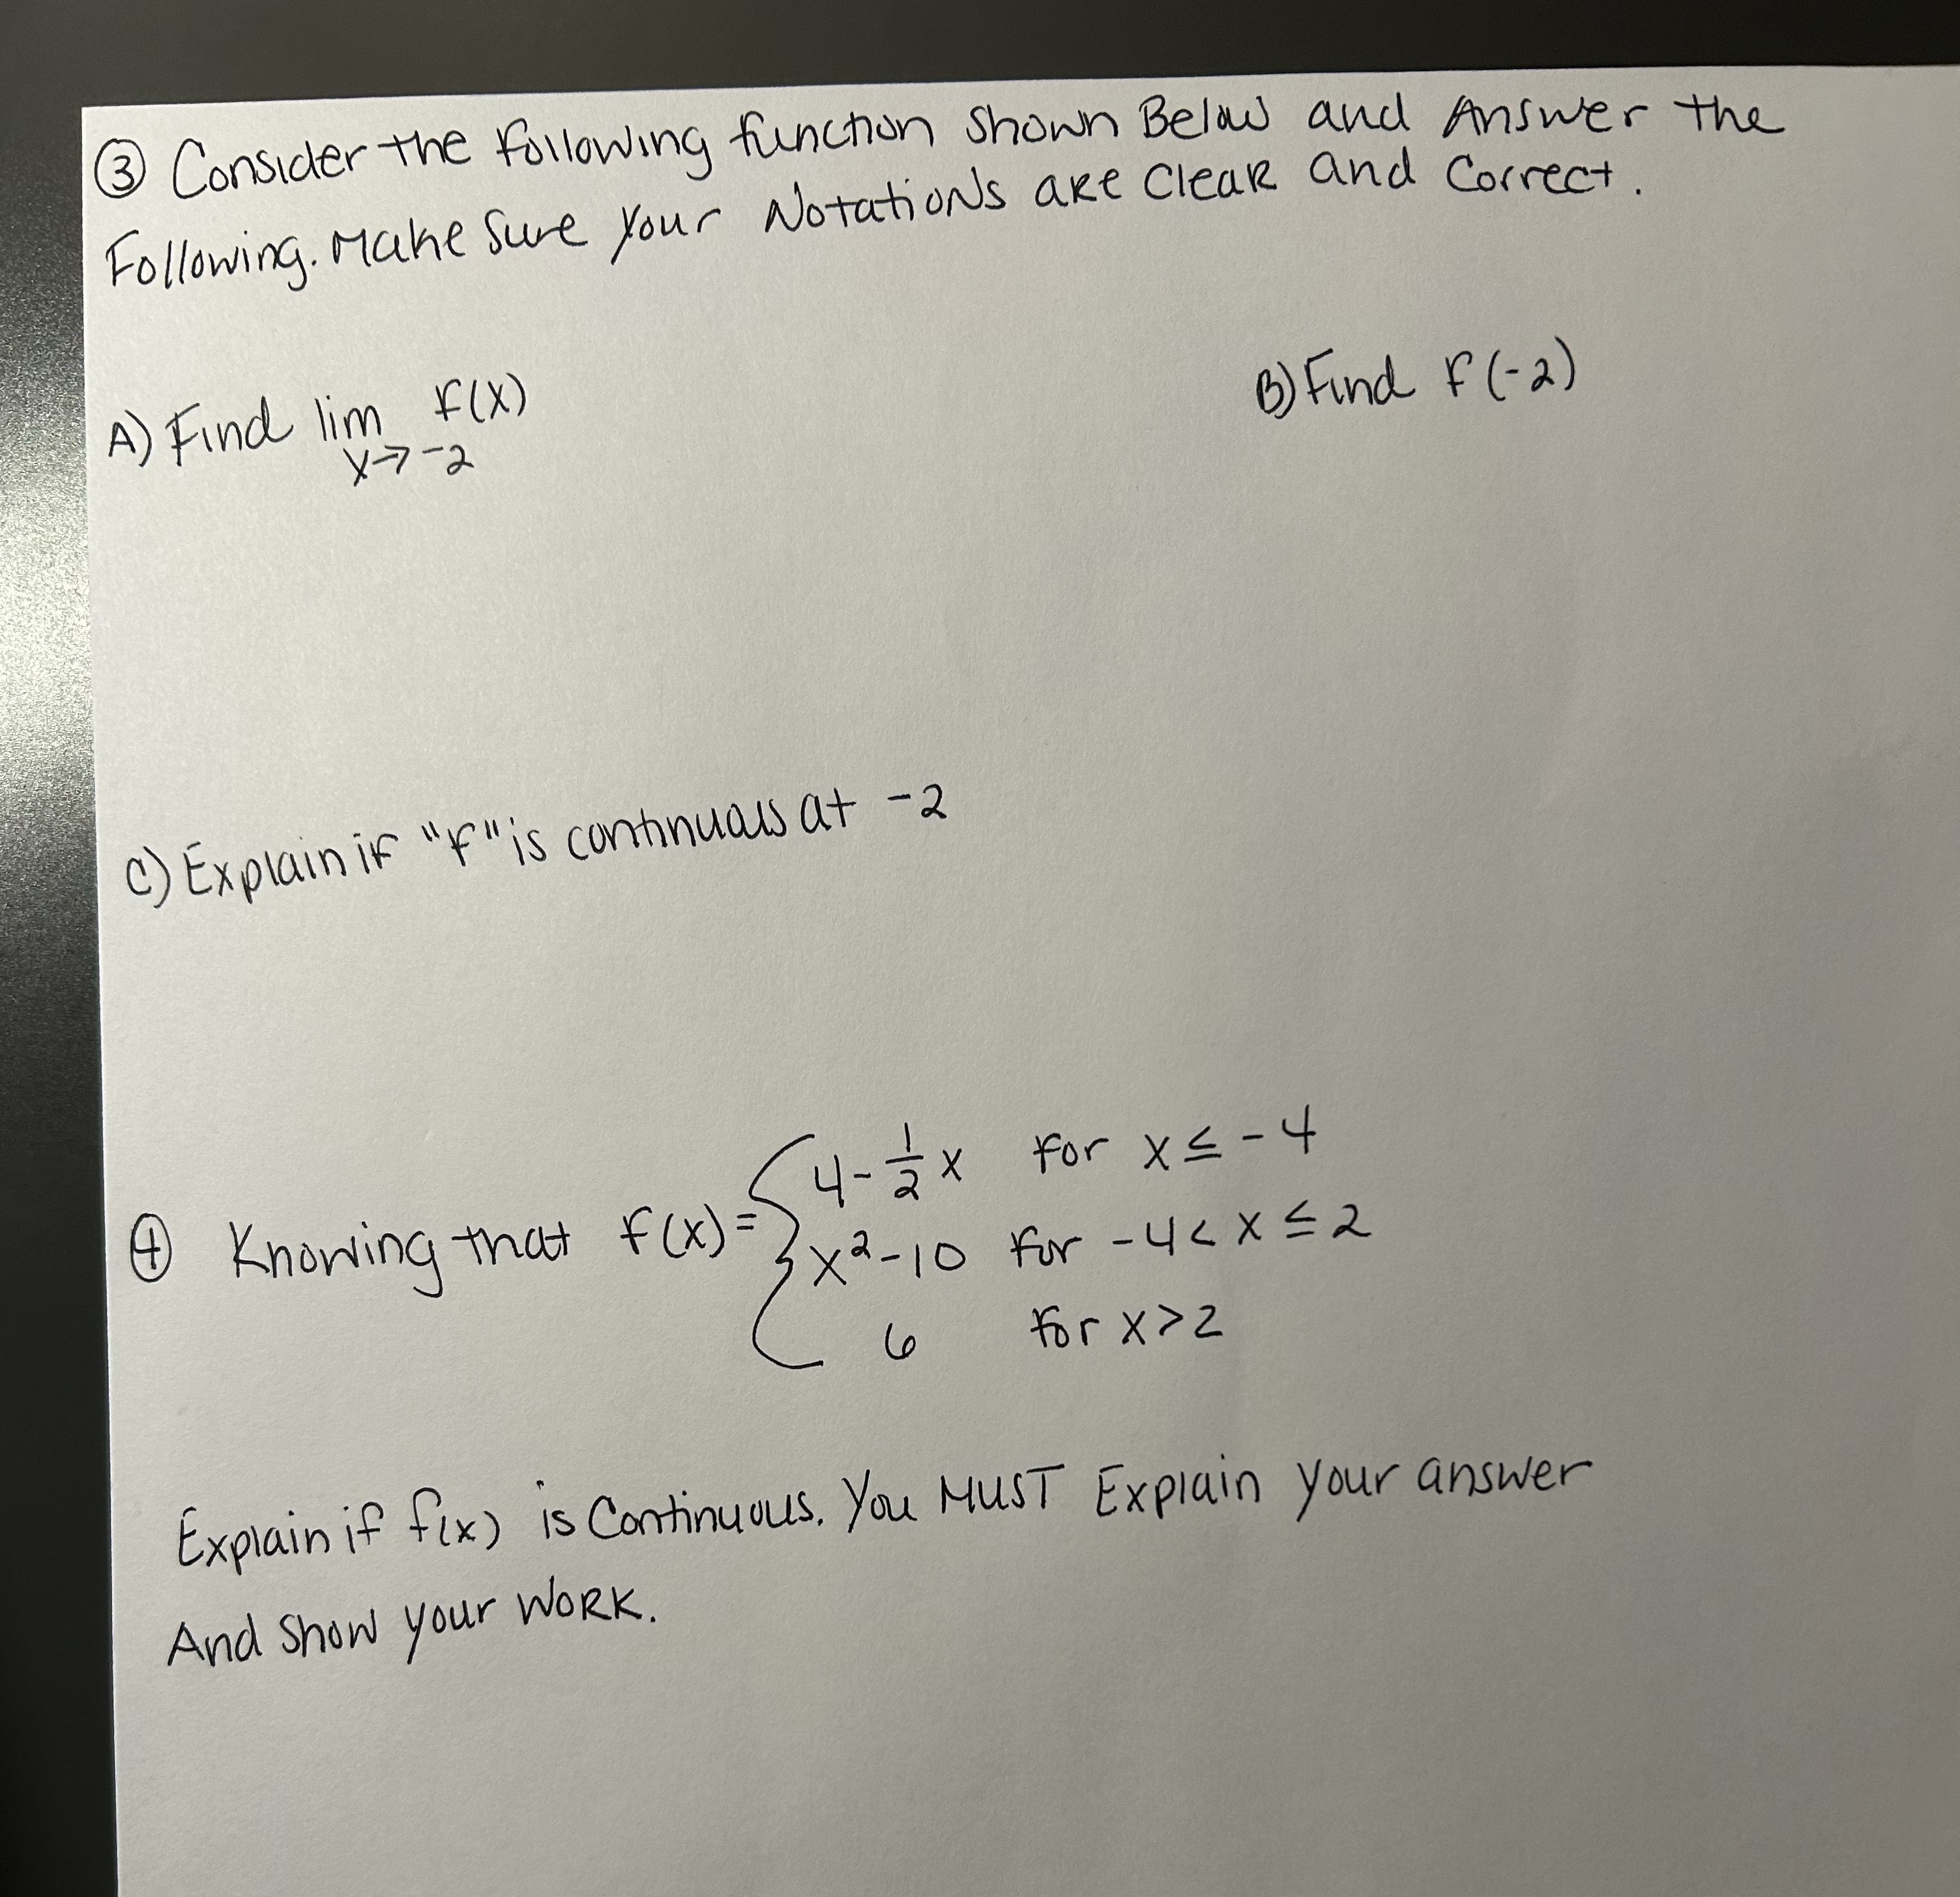 ③ Consider the following function shown Below and Answer the
Following. Make Sure your Notations are Clear and Correct.
A) Find lim f(x)
x→-2
B) Find f(-2)
C) Explain if "f" is continuous at -2
④ Knowing that f(x)= { 4-1/2x for x≤-4
x²-10 for -4<x≤2
6 for x>2
Explain if f(x) is Continuous. You MUST Explain your answer
And Show your WORK.